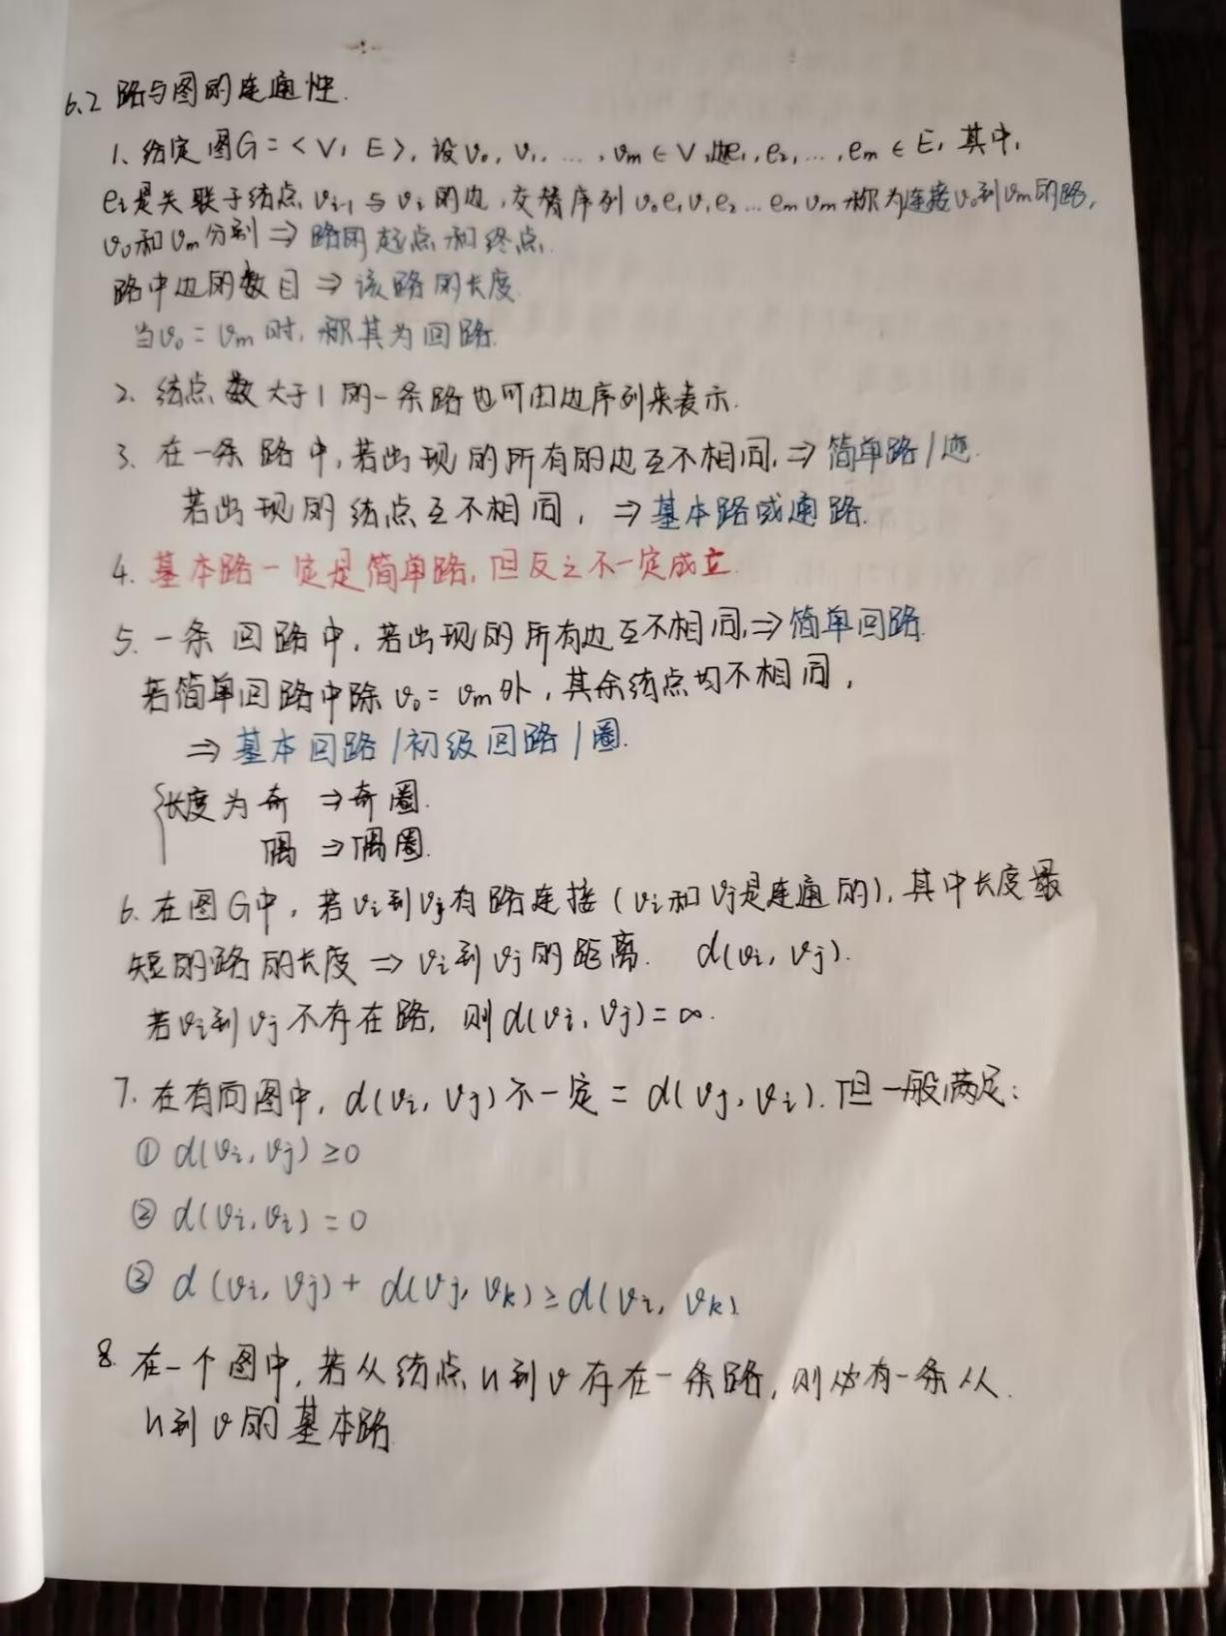 6.2 路与图的连通性.
1、给定图G=<V, E>, 设v₀, v₁, …, vm ∈ V, 边e₁, e₂, …, em ∈ E, 其中,
ei是关联于结点 vi-1 与 vi 的边, 交替序列 v₀e₁v₁e₂…emvm 称为连接v₀到vm的路,
v₀和vm分别 ⇒ 路的起点和终点.
路中边的数目 ⇒ 该路的长度.
当v₀ = vm 时, 称其为回路.
2、结点数大于1的一条路也可由边序列来表示.
3、在一条路中, 若出现的所有的边互不相同, ⇒ 简单路/迹.
若出现的结点互不相同, ⇒ 基本路或通路.
4. 基本路一定是简单路, 但反之不一定成立.
5. 一条回路中, 若出现的所有边互不相同, ⇒ 简单回路.
若简单回路中除 v₀ = vm 外, 其余结点均不相同,
⇒ 基本回路/初级回路/圈.
{长度为奇 ⇒ 奇圈.
偶 ⇒ 偶圈.
6. 在图G中, 若vi到vj有路连接 (vi和vj是连通的), 其中长度最
短的路的长度 ⇒ vi到vj的距离. d(vi, vj).
若vi到vj不存在路, 则d(vi, vj) = ∞.
7. 在有向图中, d(vi, vj) 不一定 = d(vj, vi). 但一般满足:
① d(vi, vj) ≥ 0
② d(vi, vi) = 0
③ d(vi, vj) + d(vj, vk) ≥ d(vi, vk)
8. 在一个图中, 若从结点u到v存在一条路, 则必有一条从
u到v的基本路.